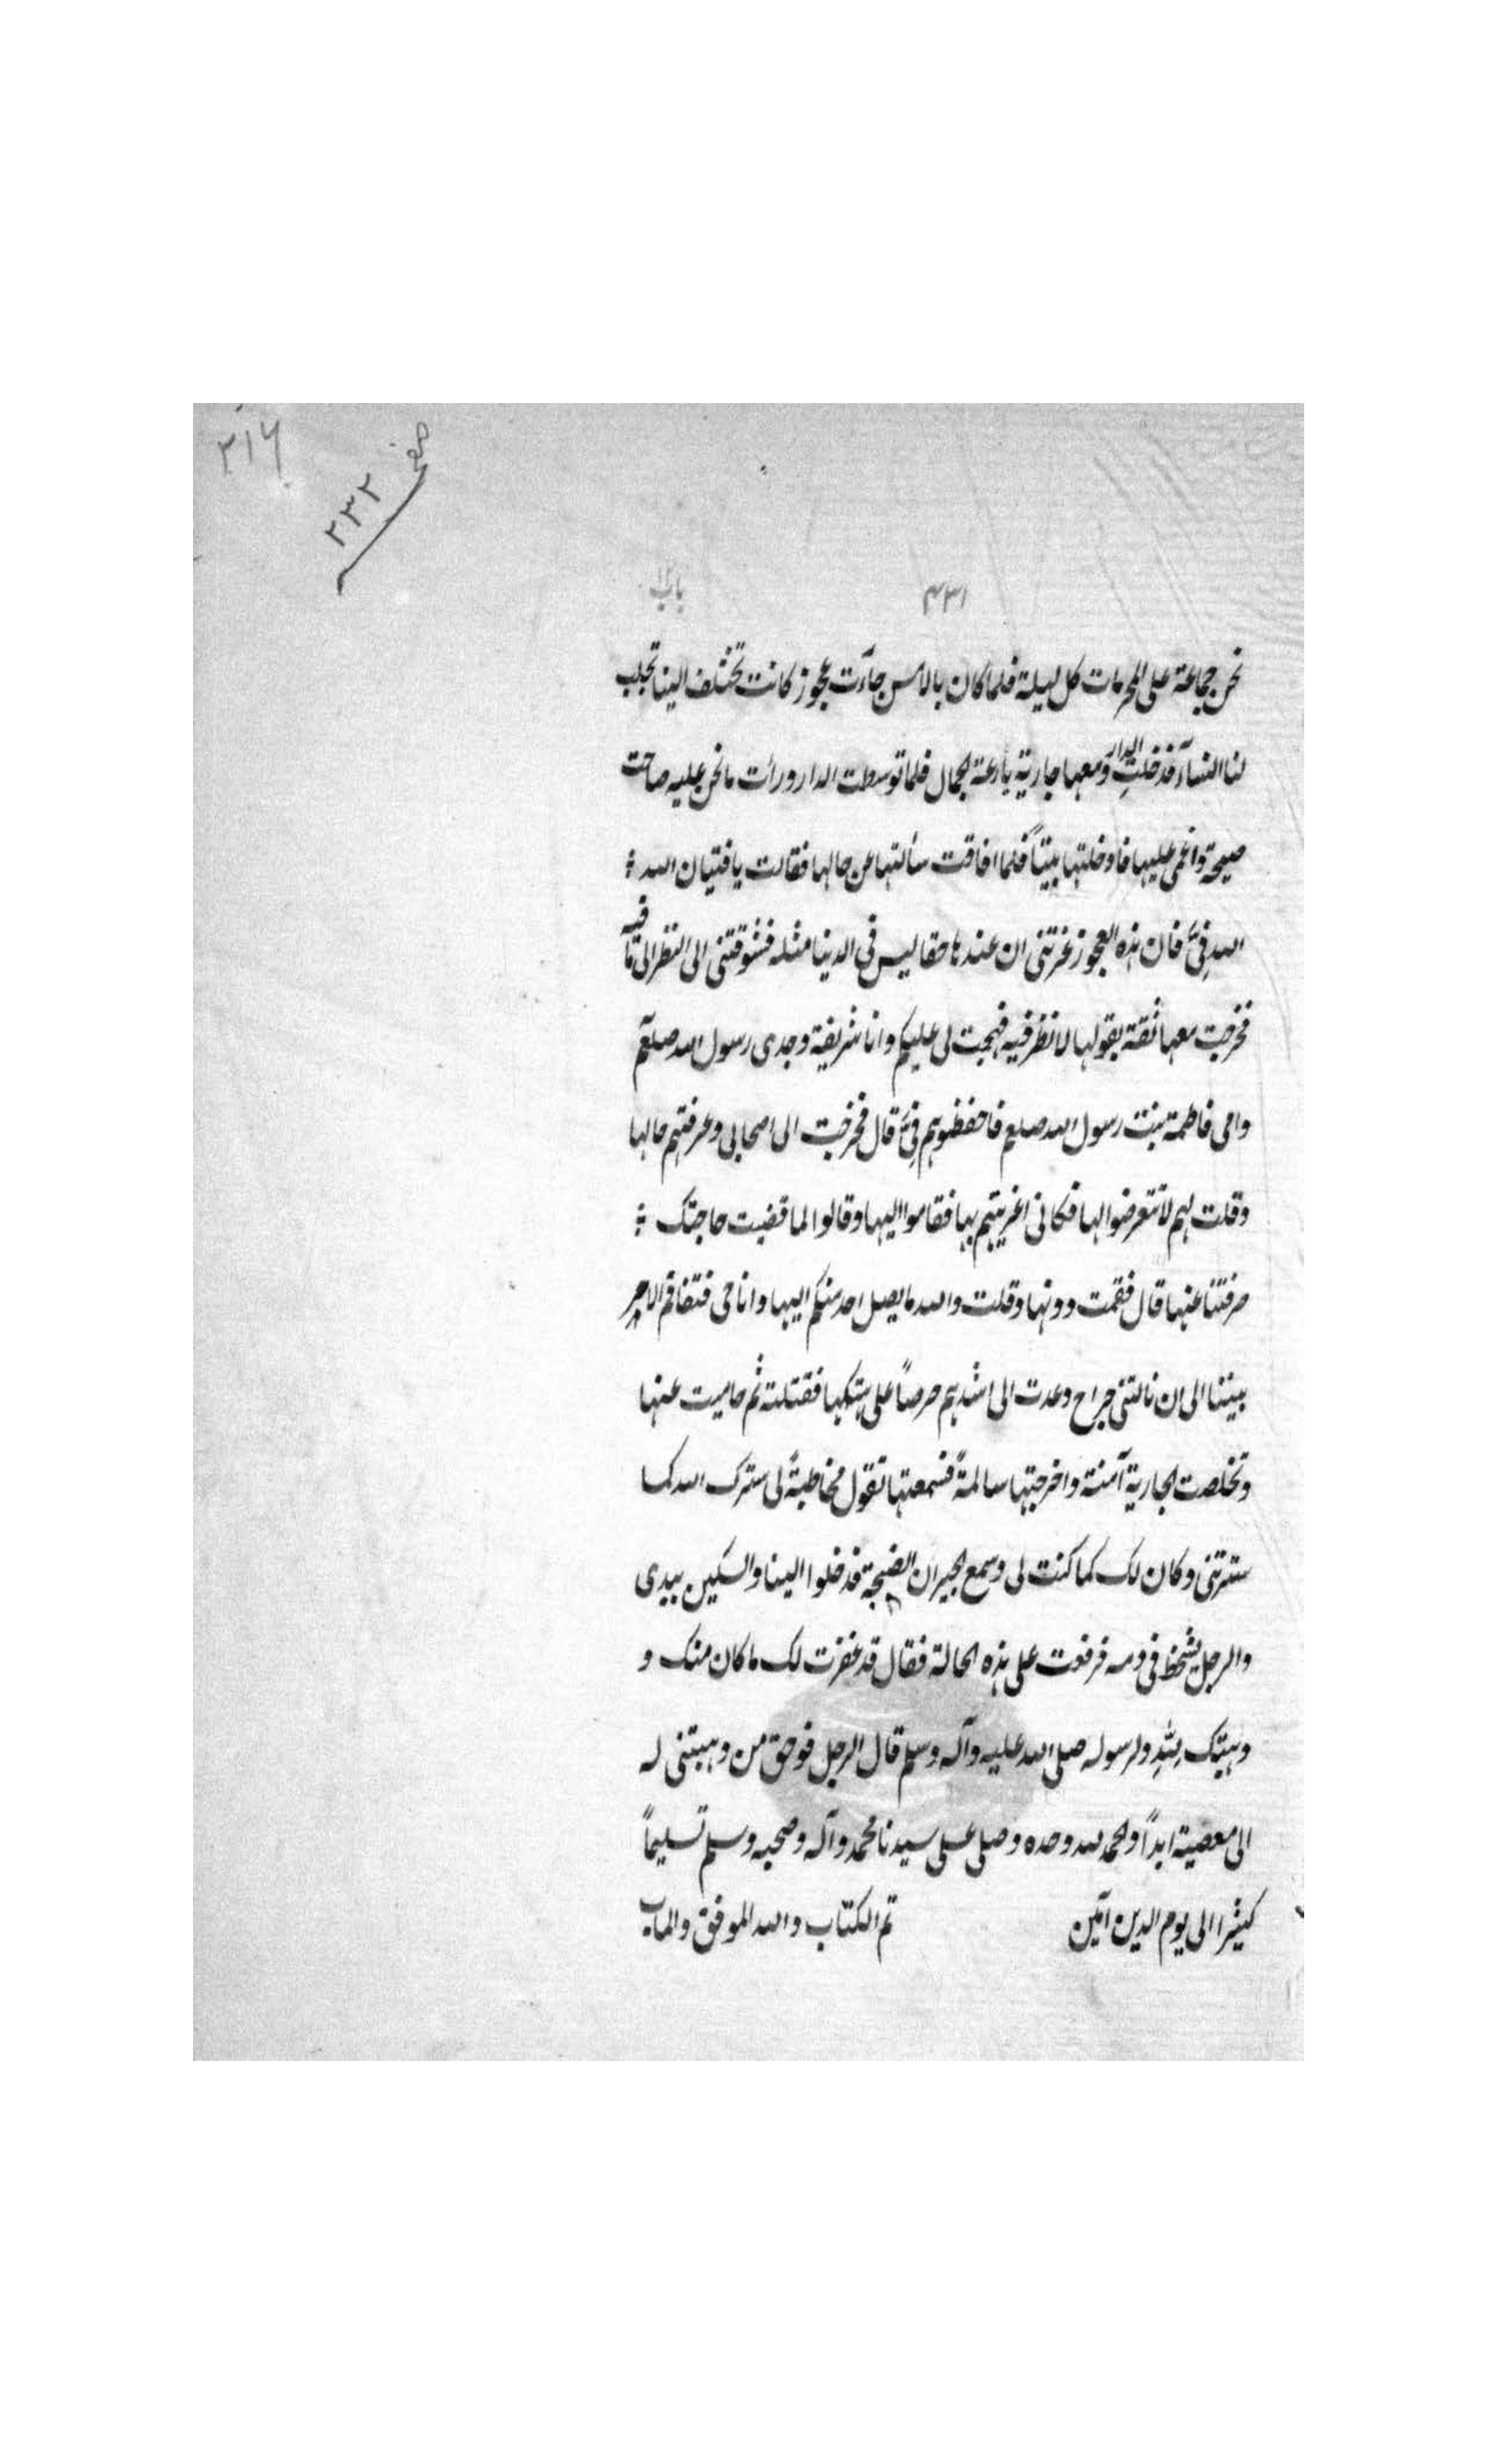 ٢١٦
صفحہ ٢٣٢
٤٣١
باب
نحن جماعة على المحرمات كل ليلة فلما كان بالامس جاءت عجوز كانت تختلف الينا تجلب
لنا النساء فدخلت الدار ومعها جارية بارعة الجمال فلما توسطت الدار ورأت ما نحن عليه صاحت
صيحة واغمى عليها فادخلتها بيتاً فلما افاقت سألتها عن حالها فقالت يا فتيان الله
الله فىّ فان هذه العجوز غرتنى ان عندها حقا ليس فى الدنيا مثله فشوقتنى الى النظر الى ما فيه
فخرجت معها ثقة بقولها لانظر فيه فهجمت لى عليكم وانا شريفة وجدى رسول الله صلعم
وامى فاطمة بنت رسول الله صلعم فاحفظوهم فىّ قال فخرجت الى اصحابى وعرفتهم حالها
وقلت لهم لا تتعرضوا لها فكانى اغريتهم بها فقاموا اليها وقالوا لما قضيت حاجتك
صرفتنا عنها قال فقمت دونها وقلت والله ما يصل احد منكم اليها وانا حى فتفاقم الامر
بيننا الى ان نالتنى جراح وعدت الى اشدهم حرصاً على هتكها فقتلته ثم حاميت عنها
وتخلصت الجارية آمنة واخرجتها سالمةً فسمعتها تقول مخاطبةً لى سترك الله كما
سترتنى وكان لك كما كنت لى وسمع الجيران الضجة فدخلوا الينا والسكين بيدى
والرجل يشحط فى دمه فرفعت على هذه الحالة فقال قد غفرت لك ما كان منك و
وهبتك لله ولرسوله صلى الله عليه وآله وسلم قال الرجل فوحق من وهبتنى له
الى معصية ابداً والحمد لله وحده وصلى على سيدنا محمد وآله وصحبه وسلم تسليماً
كثيرا الى يوم الدين آمين تم الكتاب والله الموفق والمآب